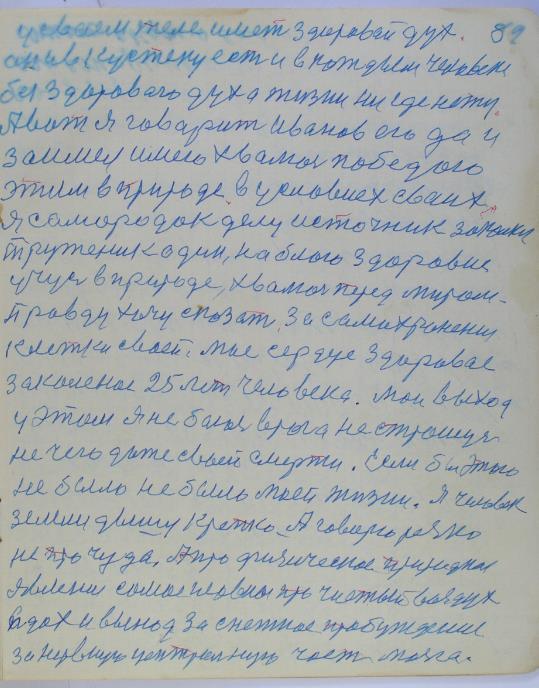 у своем теле имет здоровай дух. 89
он в кустену ест и в каждым человеке
без здороваго духа жизни ни где нету.
А вот я говарит Иванов его да и
заимел имего хвалюся победою
этим в природе в условиех сваих
я самородок делу источник закалки
труженик один, на благо здоровие
учус в природе, хвалюся перед миром.
правду хочу сказат. За самахранения
клетки своей. Мое сердце здоровае
закаленое 25 лет человека. Мои выход
у этом я не баюся врага не страшуся
не чего даже своей смерти. Если бы этого
не былло не былло моей жизни. Я человек
земли дышу крепко. А говорю резко
не про чуда. А про физическое природное
явлени самое главное про чистый воздух
вдох и выход за снежное пробуждение
за нервную централную част мозга.